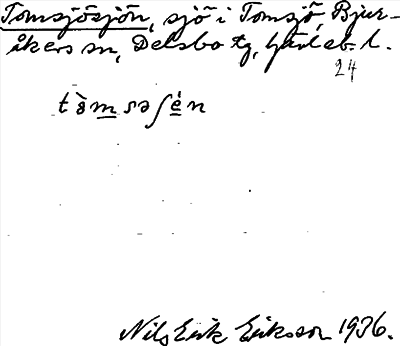 Tomsjösjön, sjö i Tomsjö, Bjur-
åkers sn, Delsbo tg, Gävleb. l.
24
tò̀m sǝʃé̱n
Nils Erik Eriksson 1936.